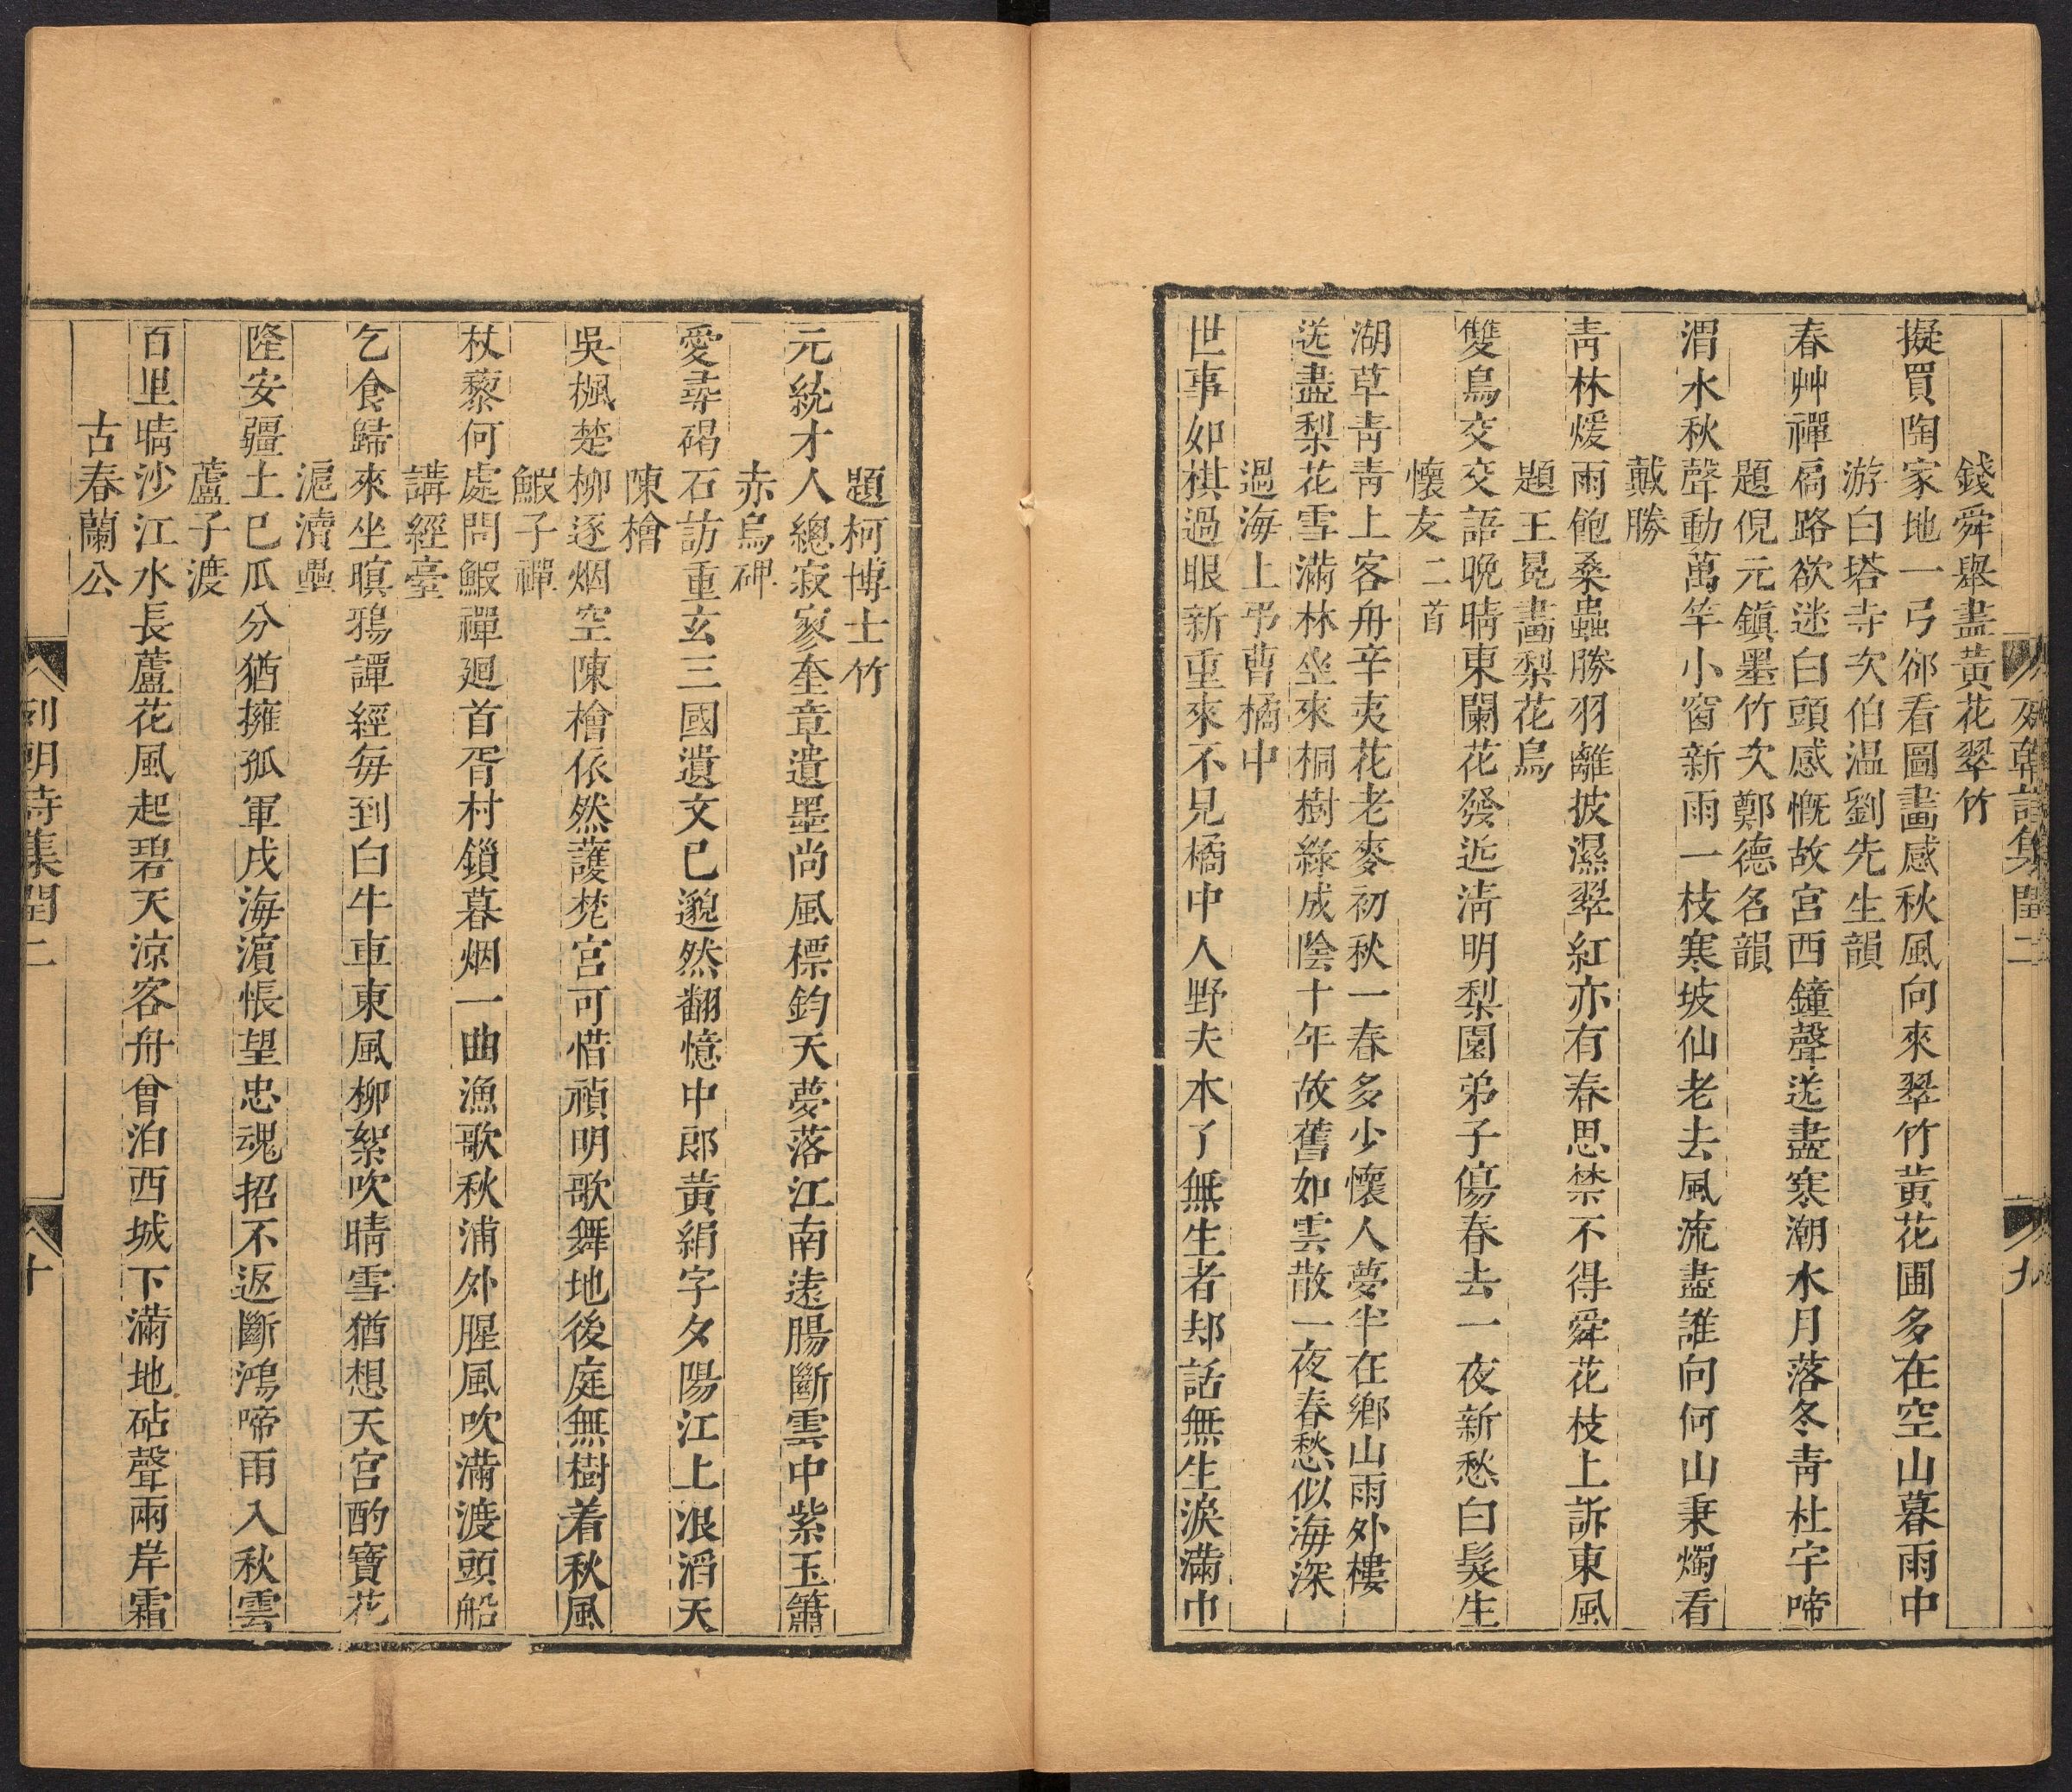 列朝詩集閏二
九
錢舜舉盡黃花翠竹
擬買陶家地一弓郤看圖畵感秋風向來翠竹黃花圃多在空山暮雨中
游白塔寺次伯温劉先生韻
春艸禪扃路欲迷白頭感慨故宮西鐘聲送盡寒潮水月落冬靑杜宇啼
題倪元鎭墨竹次鄭德名韻
渭水秋聲動萬竿小窗新雨一枝寒坡仙老去風流盡誰向何山秉燭看
戴勝
靑林煖雨飽桑蟲勝羽離披濕翠紅亦有春思禁不得舜花枝上訴東風
題王冕畵梨花鳥
雙鳥交交語晚晴東闌花發近淸明梨園弟子傷春去一夜新愁白髮生
懷友二首
湖草靑靑上客舟辛夷花老麥初秋一春多少懷人夢半在鄉山雨外樓
送盡梨花雪滿林坐來桐樹綠成陰十年故舊如雲散一夜春愁似海深
過海上弔曹橘中
世事如棋過眼新重來不見橘中人野夫本了無生者却話無生淚滿巾
題柯博士竹
元統才人總寂寥奎章遺墨尚風標鈞天夢落江南遠腸斷雲中紫玉簫
赤烏碑
愛尋碣石訪重玄三國遺文已邈然翻憶中郎黃絹字夕陽江上浪滔天
陳檜
吳楓楚柳逐烟空陳檜依然護梵宮可惜禎明歌舞地後庭無樹着秋風
鰕子禪
杖藜何處問鰕禪廻首胥村鎻暮烟一曲漁歌秋浦外腥風吹滿渡頭船
講經臺
乞食歸來坐暝鴉譚經每到白牛車東風柳絮吹晴雪猶想天宮酌寶花
滬瀆壘
隆安疆土已瓜分猶擁孤軍戍海濵悵望忠魂招不返斷鴻啼雨入秋雲
蘆子渡
百里晴沙江水長蘆花風起碧天涼客舟曾泊西城下滿地砧聲兩岸霜
古春蘭公
列朝詩集閏二
十